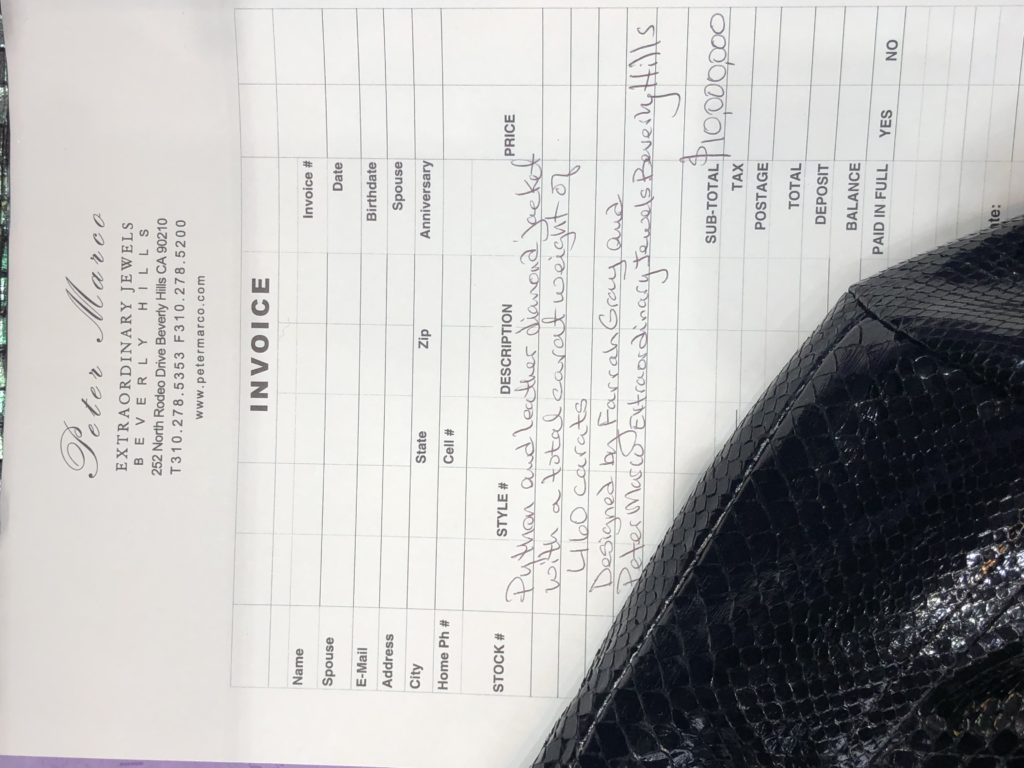 Peter Marco
EXTRAORDINARY JEWELS
BEVERLY HILLS
252 North Rodeo Drive Beverly Hills CA 90210
T310.278.5353 F310.278.5200
www.petermarco.com
INVOICE
Name Invoice #
Spouse Date
E-Mail Birthdate
Address Spouse
City State Zip Anniversary
Home Ph # Cell #
STOCK # STYLE # DESCRIPTION PRICE
Python and leather diamond jacket
with a total carat weight of
460 carats
Designed by Farrah Gray and
Peter Marco Extraordinary Jewels Beverly Hills
SUB-TOTAL $10,000,000
TAX
POSTAGE
TOTAL
DEPOSIT
BALANCE
PAID IN FULL YES NO